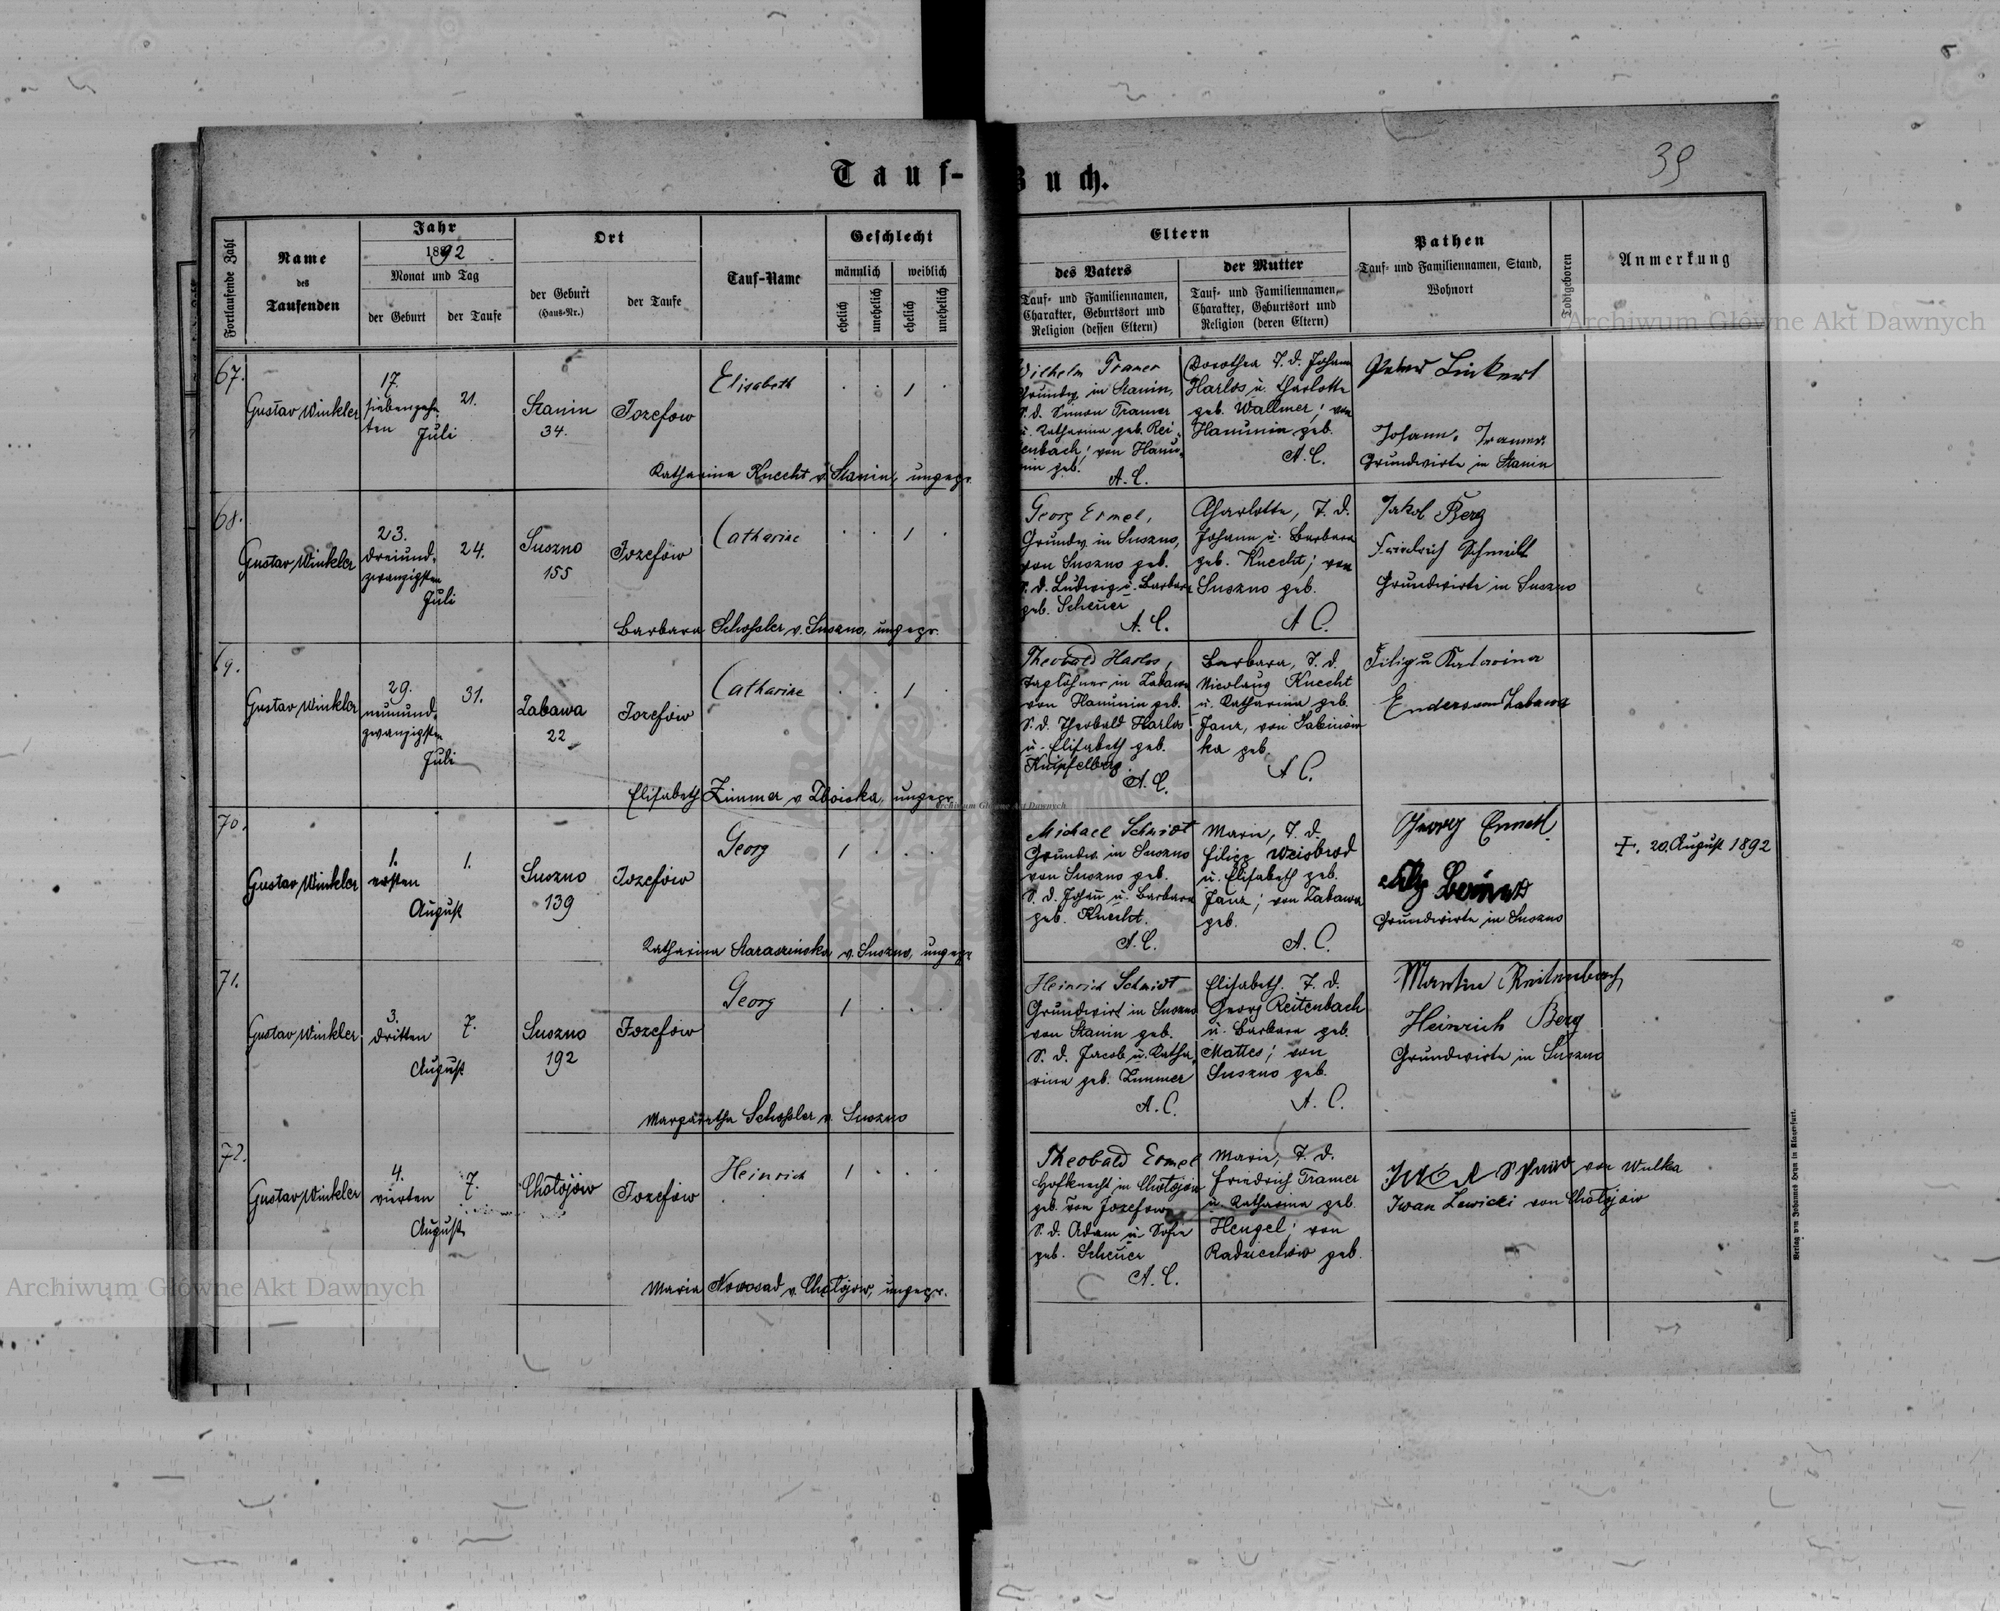 Tauf-Buch.
39
Fortlaufende Zahl
Name
des
Taufenden
Jahr
1892
Monat und Tag
der Geburt
der Taufe
Ort
der Geburt
(Haus-Nr.)
der Taufe
Tauf-Name
Geschlecht
männlich
weiblich
ehelich
unehelich
ehelich
unehelich
Eltern
des Vaters
Tauf- und Familiennamen,
Charakter, Geburtsort und
Religion (dessen Eltern)
der Mutter
Tauf- und Familiennamen,
Charakter, Geburtsort und
Religion (deren Eltern)
Pathen
Tauf- und Familiennamen, Stand,
Wohnort
Todtgeboren
Anmerkung
67.
Gustav Winkler
17.
siebenzehn-
ten
Juli
21.
Stanin
34.
Jozefow
Elisabeth
1
Katharina Knecht v. Stanin, ungepr.
Wilhelm Tramer
Grundw. in Stanin,
S. d. Simon Tramer
u. Katharina geb. Rei-
enbach; von Hanu-
nin geb.
A. C.
Dorothea T. d. Johann
Harlos u. Charlotte
geb. Wallmer; von
Hanunin geb.
A. C.
Peter Linkert
Johann Tramer
Grundwirte in Stanin
68.
Gustav Winkler
23.
dreiund-
zwanzigsten
Juli
24.
Suszno
155
Jozefow
Catharine
1
Barbara Schossler v. Suszno, ungepr.
Georg Ermel,
Grundw. in Suszno,
von Suszno geb.
S. d. Ludwig u. Barbara
geb. Scheuer
A. C.
Charlotte, T. d.
Johann u. Barbara
geb. Knecht; von
Suszno geb.
A C.
Jakob Berg
Friedrich Schmidt
Grundwirte in Suszno
69.
Gustav Winkler
29.
neunund-
zwanzigsten
Juli
31.
Zabawa
22
Jozefow
Catharine
1
Elisabeth Zimmer v Zboiska, ungepr.
Theobald Harlos,
Taglöhner in Zabawa
von Hanunin geb.
S. d. Theobald Harlos
u. Elisabeth geb.
Knipfelberg
A. C.
Barbara, T. d.
Nicolaus Knecht
u. Katharina geb.
Janz, von Sabinow-
ka geb.
A C.
Filip u Katarina
Enders von Zabawa
70.
Gustav Winkler
1.
ersten
August
1.
Suszno
139
Jozefow
Georg
1
Katharina Staraszinska v. Suszno, ungepr
Michael Schmidt
Grundw. in Suszno
von Suszno geb.
S. d. Johan u. Barbara
geb. Knecht.
A. C.
Marie, T. d.
Filipp Weisbrod
u. Elisabeth geb.
Janz; von Zabawa
geb.
A. C.
Georg Ermel
Grundwirte in Suszno
†. 20 August 1892
71.
Gustav Winkler
3.
dritten
August
7.
Suszno
192
Jozefow
Georg
1
Margaretha Schossler v. Suszno
Heinrich Schmidt
Grundwirt in Suszno
von Stanin geb.
S. d. Jacob u. Katha-
rina geb. Zimmer
A. C.
Elisabeth. T. d.
Georg Reitenbach
u. Barbara geb.
Mattes; von
Suszno geb.
A. C.
Martin Reitenbach
Heinrich Berg
Grundwirte in Suszno
72.
Gustav Winkler
4.
vierten
August
7.
Chołojow
Jozefow
Heinrich
1
Maria Nowosad v. Chołojow, ungepr.
Theobald Ermel
Hofknecht in Chołojow
geb. von Jozefow
S. d. Adam u Sofie
geb. Scheuer
A. C.
Marie, T. d.
Friedrich Tramer
u. Katharina geb.
Hengel; von
Radziechow geb.
von Wulka
Iwan Lewicki von Chołojow
Verlag von Johannes Heyn in Klagenfurt.
Archiwum Główne Akt Dawnych
Archiwum Główne Akt Dawnych
Archiwum Główne Akt Dawnych